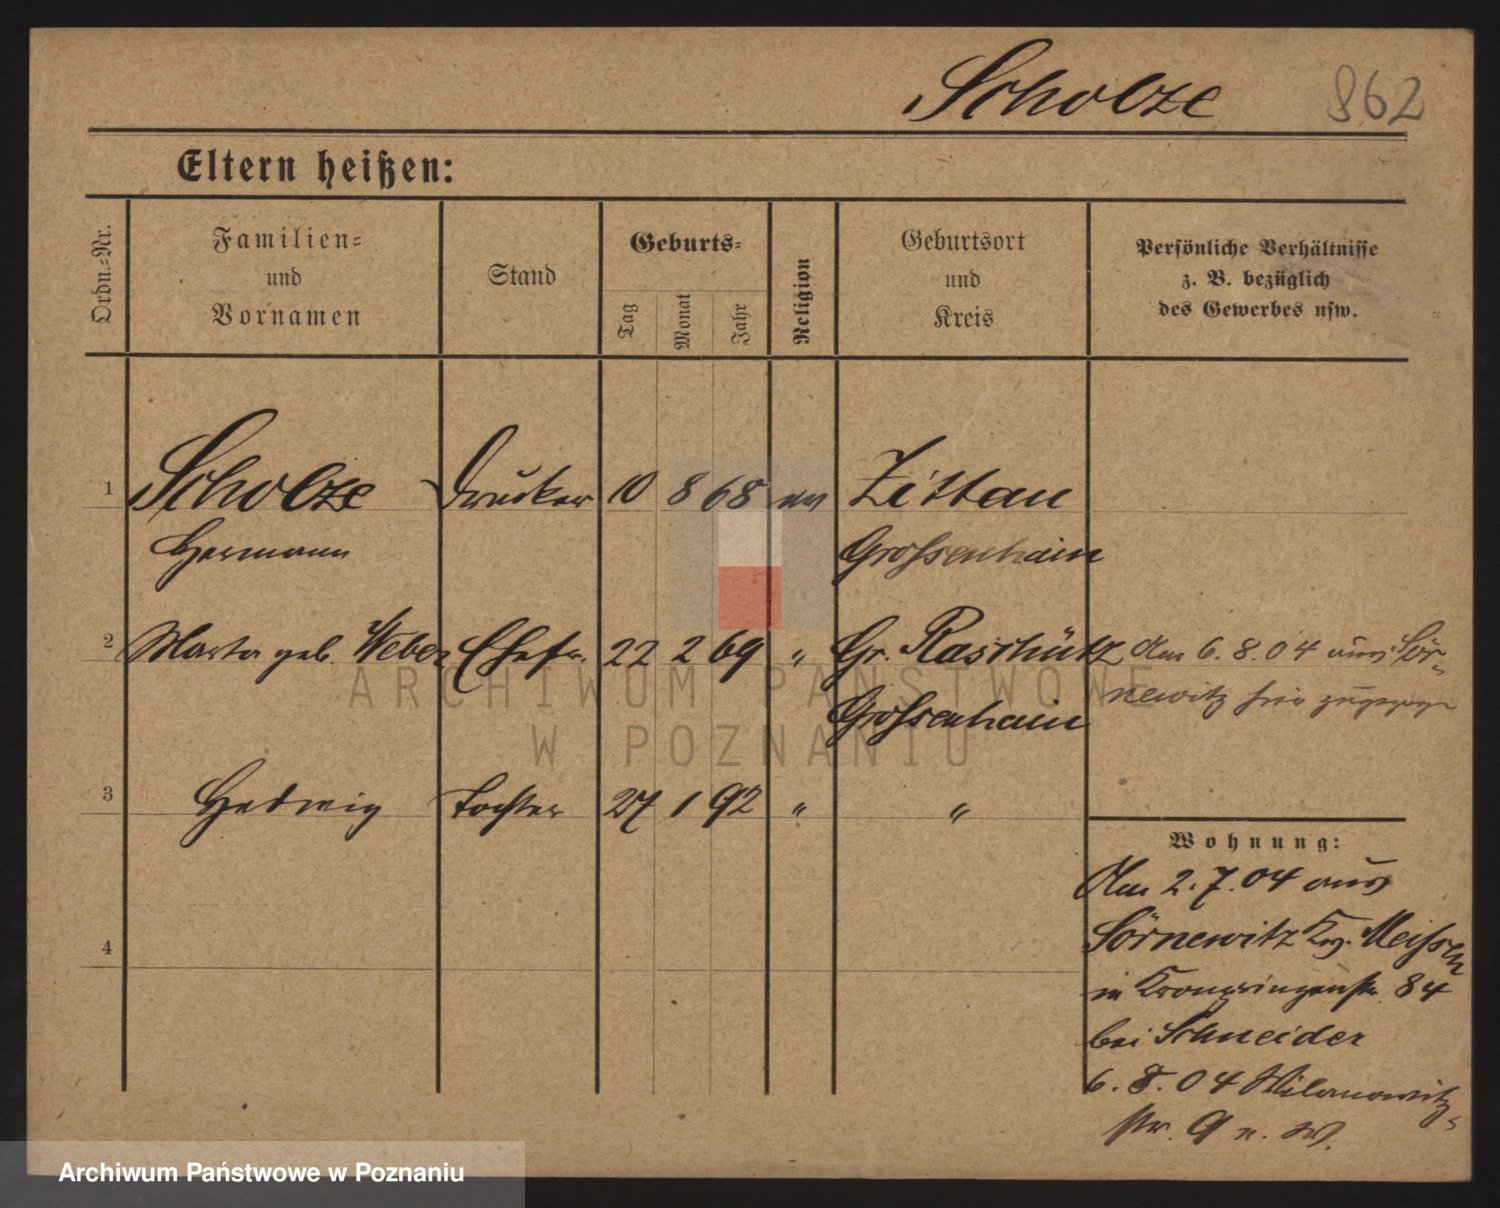 Scholze 862
Eltern heißen:
Ordn.-Nr.
Familien-
und
Vornamen
Stand
Geburts-
Tag
Monat
Jahr
Religion
Geburtsort
und
Kreis
Persönliche Verhältnisse
z. B. bezüglich
des Gewerbes usw.
1 Scholze Drucker 10 8 68 ev Zittau
Hermann Grossenhain
2 Marta geb. Weber Ehefr. 22 2 69 " Gr. Raschütz Am 6.8.04 aus Sör-
Grossenhain newitz hier
3 Hedwig Tochter 27 1 92 " "
Wohnung:
Am 2.7.04 aus
Sörnewitz Meissen
4
in Kronprinzenstr. 84
bei Schneider
6.8.04 Wilamowitz-
str. 9
ARCHIWUM PAŃSTWOWE
W POZNANIU
Archiwum Państwowe w Poznaniu